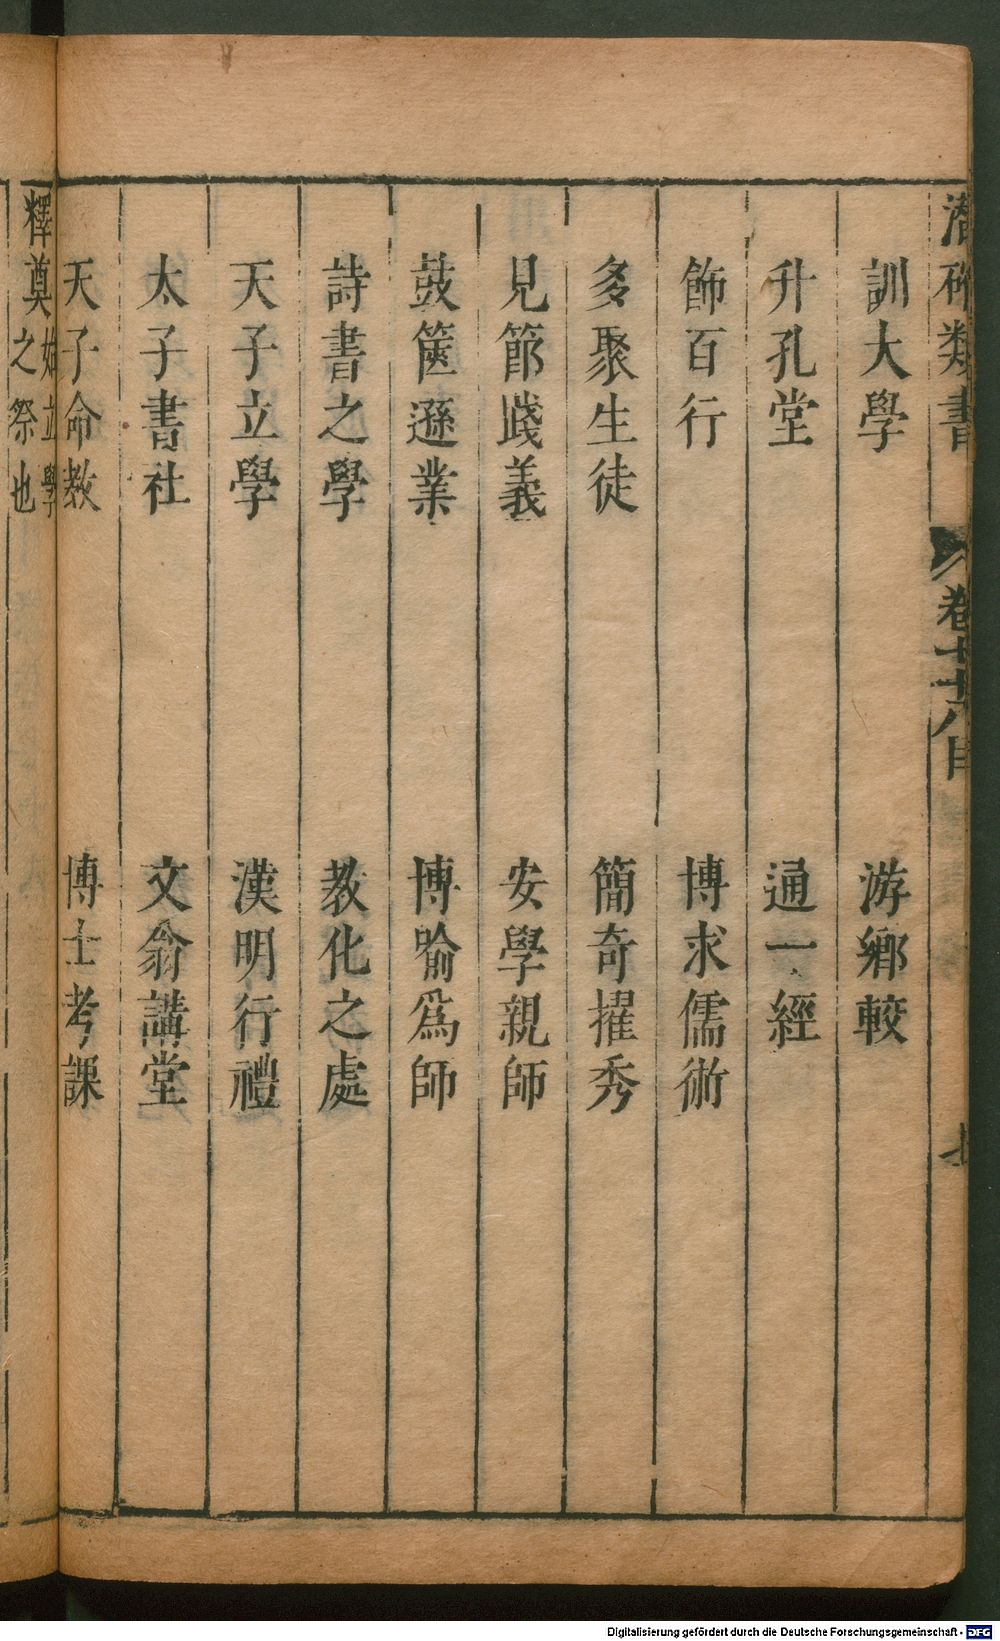 潛確類書
卷七十八目
訓大學 游鄉較
升孔堂 通一經
飾百行 博求儒術
多聚生徒 簡奇擢秀
見節踐義 安學親師
鼓篋遜業 博喻爲師
詩書之學 教化之處
天子立學 漢明行禮
太子書社 文翁講堂
天子命教 博士考課
釋奠始立學
之祭也
Digitalisierung gefördert durch die Deutsche Forschungsgemeinschaft - DFG